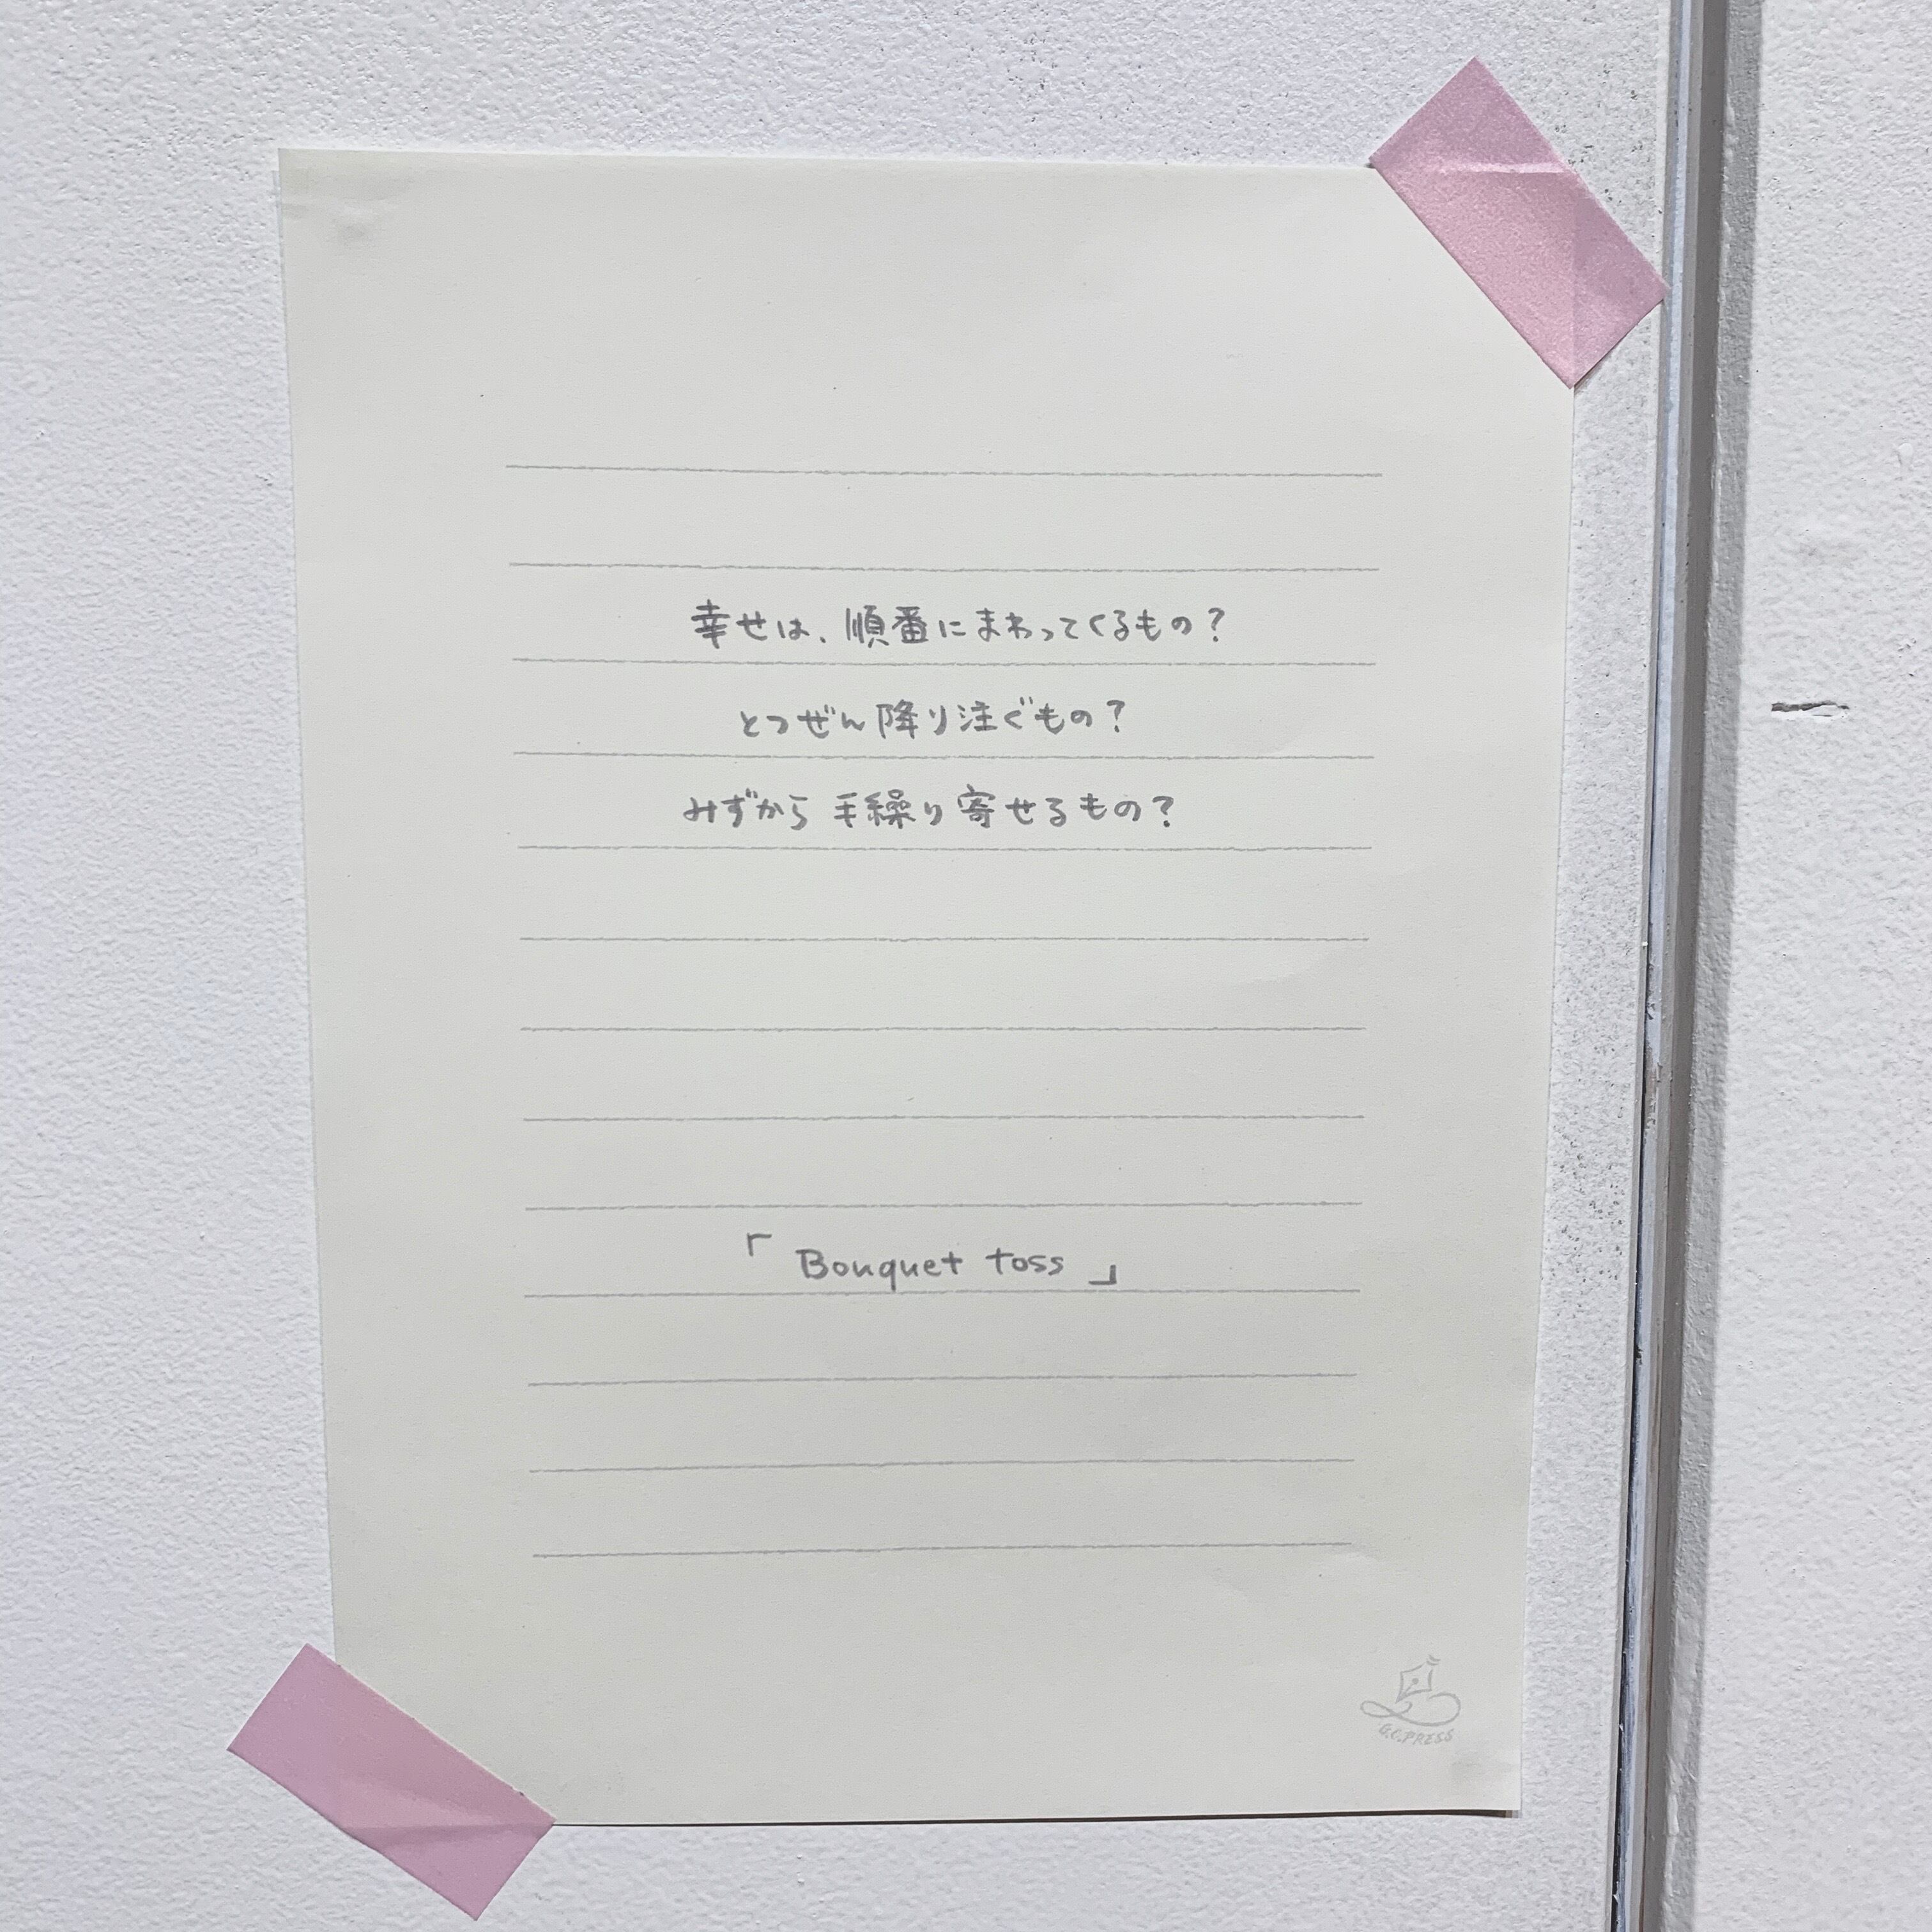 幸せは、順番にまわってくるもの？
とつぜん降り注ぐもの？
みずから手繰り寄せるもの？
「Bouquet toss」
G.C.PRESS